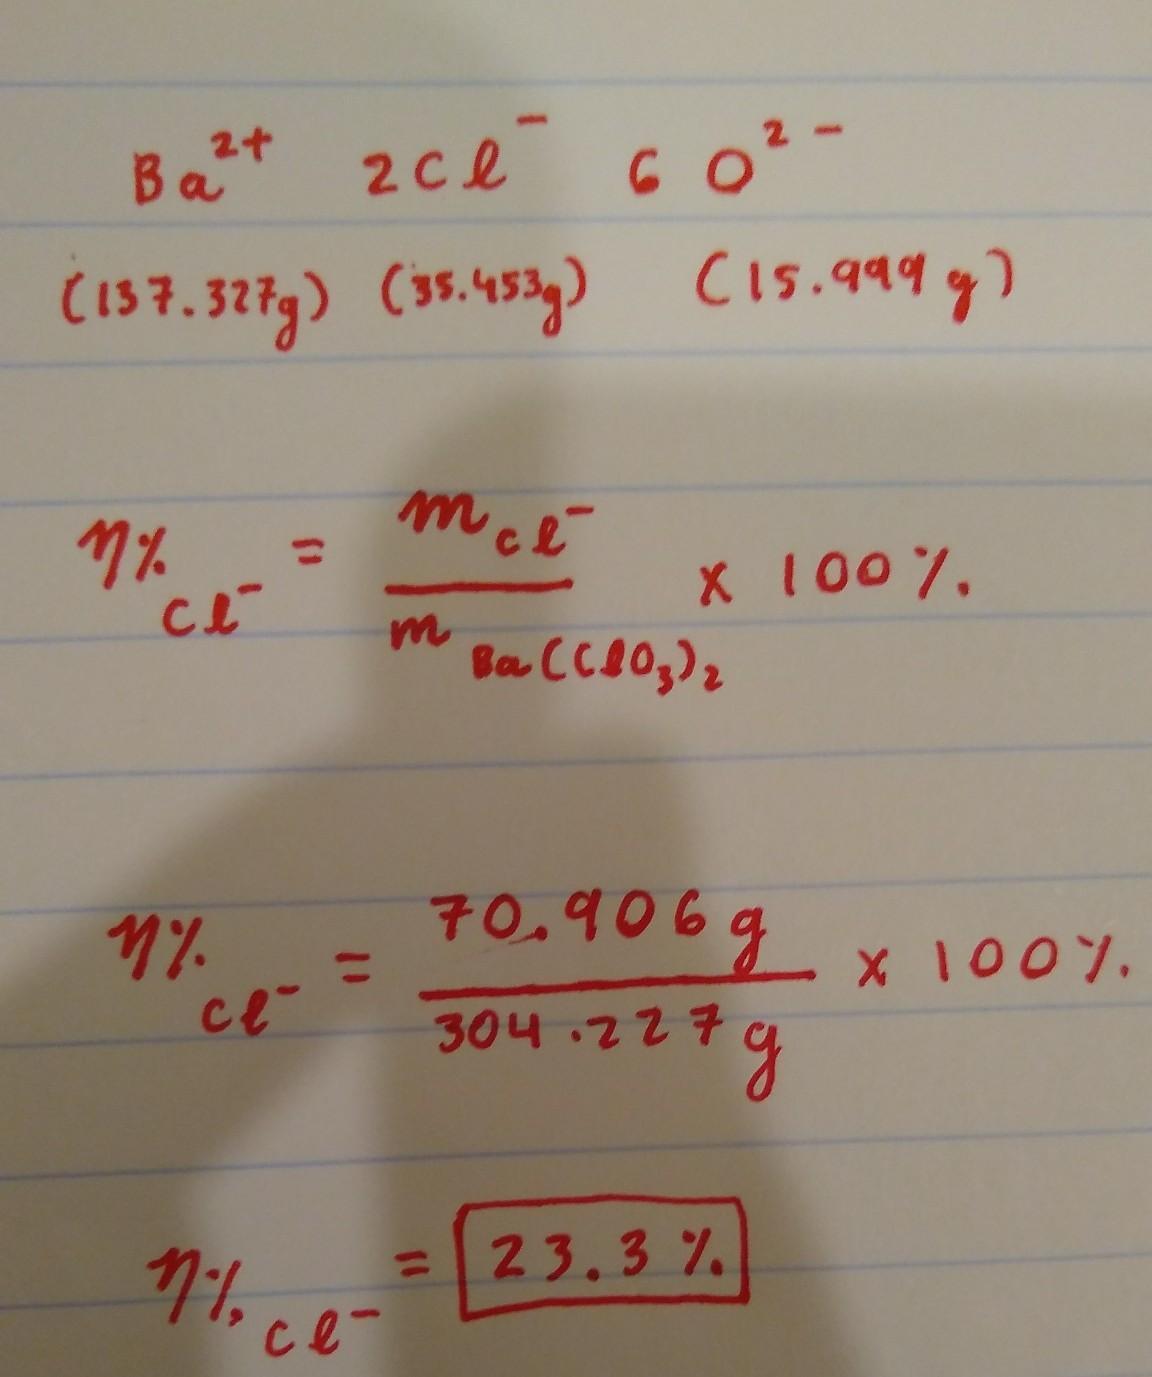 Ba²⁺ 2Cl⁻ 6 O²⁻
(137.327g) (35.453g) (15.999 g)
η%Cl⁻ = mCl⁻ / mBa(ClO₃)₂ x 100%
η%Cl⁻ = 70.906 g / 304.227 g x 100%
η%Cl⁻ = 23.3 %